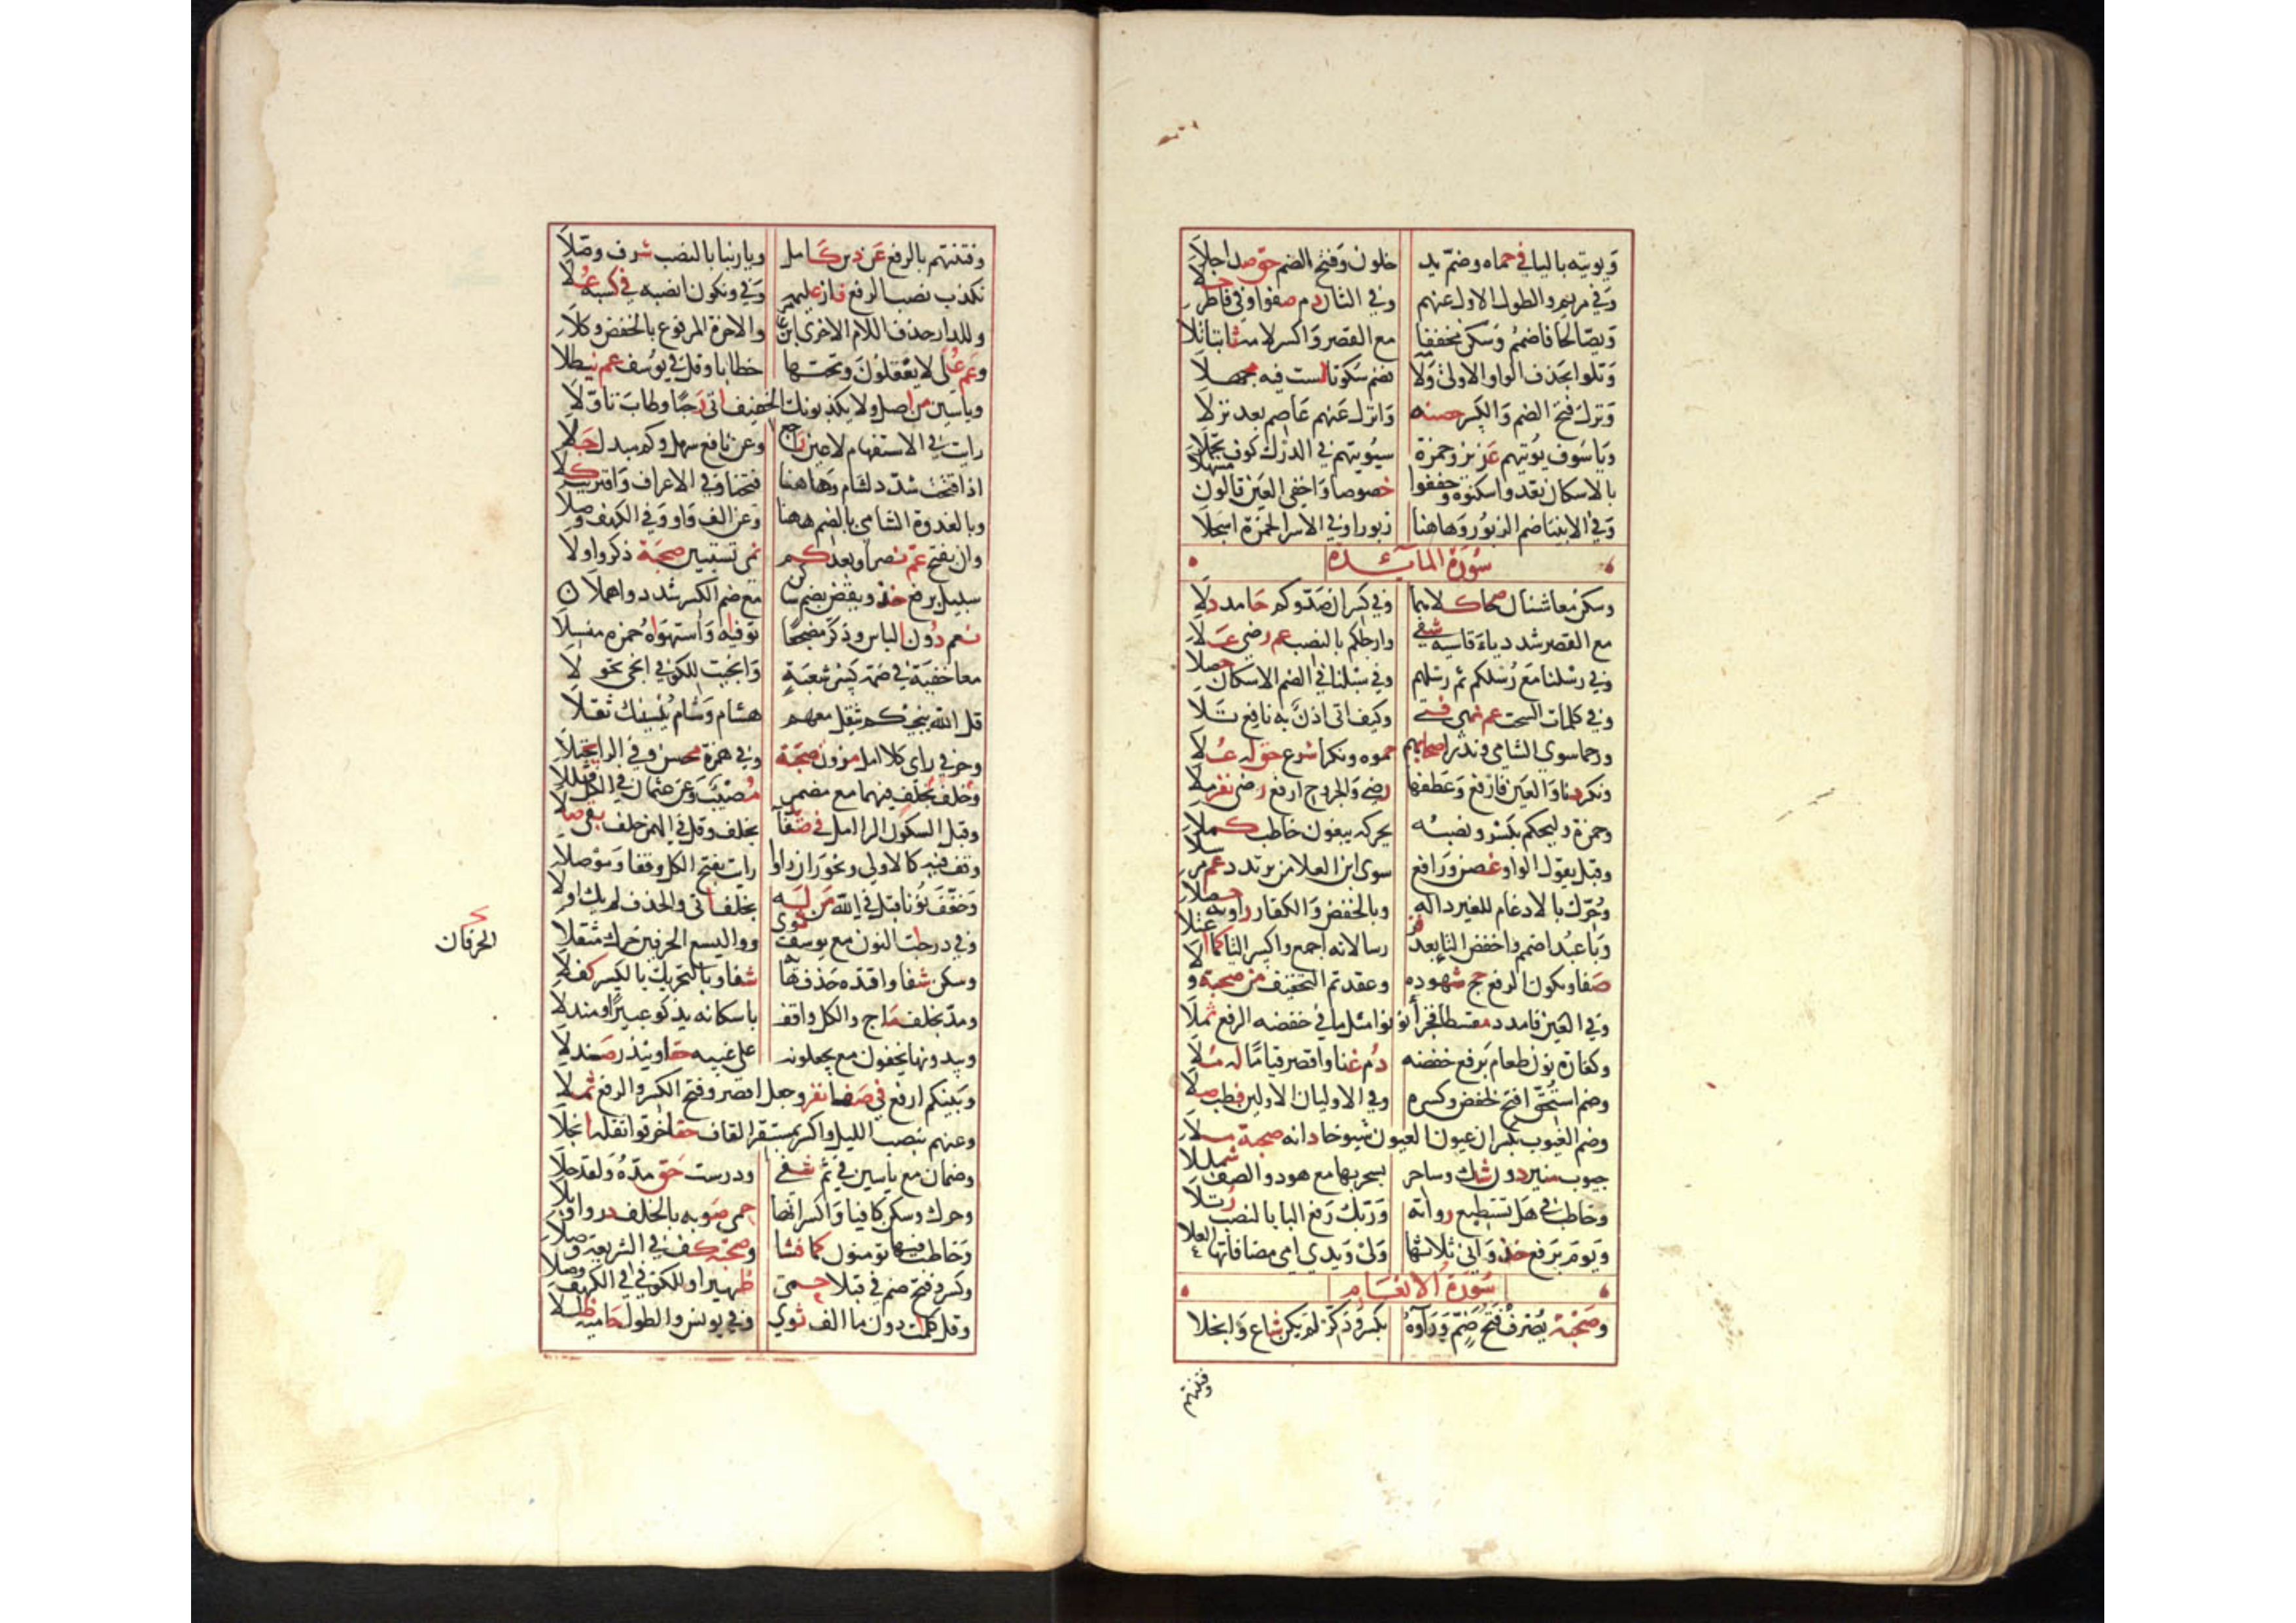 ويوتيه باليا في حماه وضم يد خلون وفتح الضم حق صدا حلا
وفي مريم والطول الاول عنهم وفي الثان دم صفوا وفي فاطر حلا
ويصالحا فاضمم وسكن مخففا مع القصر واكسر لامه ثابتا تلا
وتلوا بحذف الواو الاولى ولا فضم سكونا لست فيه مجهلا
ونزل فتح الضم والكسر حصنه وانزل عنهم عاصم بعد نزلا
ويا سوف يؤتيهم عزيز وحمزة سيؤتيهم في الدرك كوف تحملا
بالاسكان تعدوا سكنوه وخففوا خصوصا واخفى العين قالون مسهلا
وفي الانبيا ضم الزبور وهاهنا زبورا وفي الاسرا لحمزة اسجلا
سورة المائدة
وسكن معا شنان صحا كلاهما وفي كسر ان صدوكم حامد دلا
مع القصر شدد ياء قاسية شفى وارجلكم بالنصب عم رضى علا
وفي رسلنا مع رسلكم ثم رسلهم وفي سبلنا في الضم الاسكان حصلا
وفي كلمات السحت عم نهى فتى وكيف اتى اذن به نافع تلا
ورحما سوى الشامي ونذرا صحابهم حموه ونكرا شرع حق له علا
ونكر دنا والعين فارفع وعطفها رضى والجروح ارفع رضى نفر ملا
وحمزة وليحكم بكسر ونصبه يحركه يبغون خاطب كملا
وقبل يقول الواو غصن ورافع سوى ابن العلا من يرتدد عم مرسلا
وحرك بالادغام للغير داله وبالخفض والكفار راويه حصلا
وبا عبد اضمم واخفض التا بعد فز رسالاته اجمع واكسر التا كما اعتلا
صفا وتكون الرفع حج شهوده وعقدتم التخفيف من صحبة ولا
وفي العين فامدد مقسطا فجزا نو نوا مثل ما في خفضه الرفع ثملا
وكفارة نون طعام برفع خفضه دم غنا واقصر قياما له ملا
وضم استحق افتح لحفص وكسره وفي الاوليان الاولين فطب صلا
وضم الغيوب يكسران عيونا العيون شيوخا دانه صحبة ملا
جيوب منير دون شك وساحر بسحر بها مع هود والصف شمللا
وخاطب في هل تستطيع رواته وربك رفع البا بالنصب رتلا
ويوم برفع خذ واني ثلاثها ولي ويدي امي مضافاتها العلا
سورة الانعام
وصحبة يصرف فتح ضم وراؤه بكسر وذكر لم يكن شاع وانجلا
وفتنتهم
وفتنتهم بالرفع عن دين كامل ويا ربنا بالنصب شرف وصلا
نكذب نصب الرفع فاز عليمه وفي ونكون انصبه في كسبه علا
وللدار حذف اللام الاخرى ابن عا والاخرة المرفوع بالخفض وكلا
وعم علا لا يعقلون وتحتها خطابا وقل في يوسف عم نيطلا
وياسين من اصل ولا يكذبونك الخفيف اتى رحبا وطاب تاولا
رايت في الاستفهام لا عين راجع وعن نافع سهل وكم مبدل جلا
اذا فتحت شدد لشام وهاهنا فتحنا وفي الاعراف واقتربت كلا
وبالغدوة الشامي بالضم ههنا وعن الف واو وفي الكهف وصلا
وان بفتح عم نصرا وبعد كم نمى تستبين صحبة ذكروا ولا
سبيل برفع خذ ويقض بضم ساكن مع ضم الكسر شدد واهملا
نعم دون الباس وذكر مضجعا توفيه واستهواه حمزة منسلا
معا خفية في ضمه كسر شعبة وانجيت للكوفي انجى تحولا
قل الله ينجيكم يثقل معهم هشام وشام ينسينك ثقلا
وحرفي راى كلا امل مزن صحبة وفي همزه حسن وفي الرا يجتلا
وخلف يخلف فيهما مع مضمر مصيب وعن عثمان في الكل قللا
وقبل السكون الرا امل في صفا يد بخلف وقل في الهمز خلف يقي صلا
وقف فيه كالاولى ونحو رات راوا رايت بفتح الكل وقفا وموصلا
وخفف نونا قبل في الله من له بخلف اتى والحذف لم يك اولا
وفي درجات النون مع يوسف ثوى ووالليسع الحرفين حرك مثقلا
الحرفان
وسكن شفا واقتده حذف هائه شفاء وبالتحريك بالكسر كفلا
ومد بخلف ماج والكل واقف باسكانه يذكو عبيرا ومندلا
ويبدونها يخفون مع يجعلونه على غيبه حقا وينذر صندلا
وبينكم ارفع في صفا نفر وجعل اقصر وفتح الكسر والرفع ثملا
وعنهم بنصب الليل واكسر بمستقر القاف حقا خرقوا ثقله انجلا
وضمان مع ياسين في ثمر شفى ودرست حق مده ولقد حلا
وحرك وسكن كافيا واكسر انها حمى صوبه بالخلف در واوبلا
وخاطب فيها تؤمنون كما فشا وصحبة كف في الشريعة وصلا
وكسر وفتح ضم في قبلا حمى ظهيرا وللكوفي في الكهف وصلا
وقل كلمات دون ما الف ثوى وفي يونس والطول حاميه ظللا